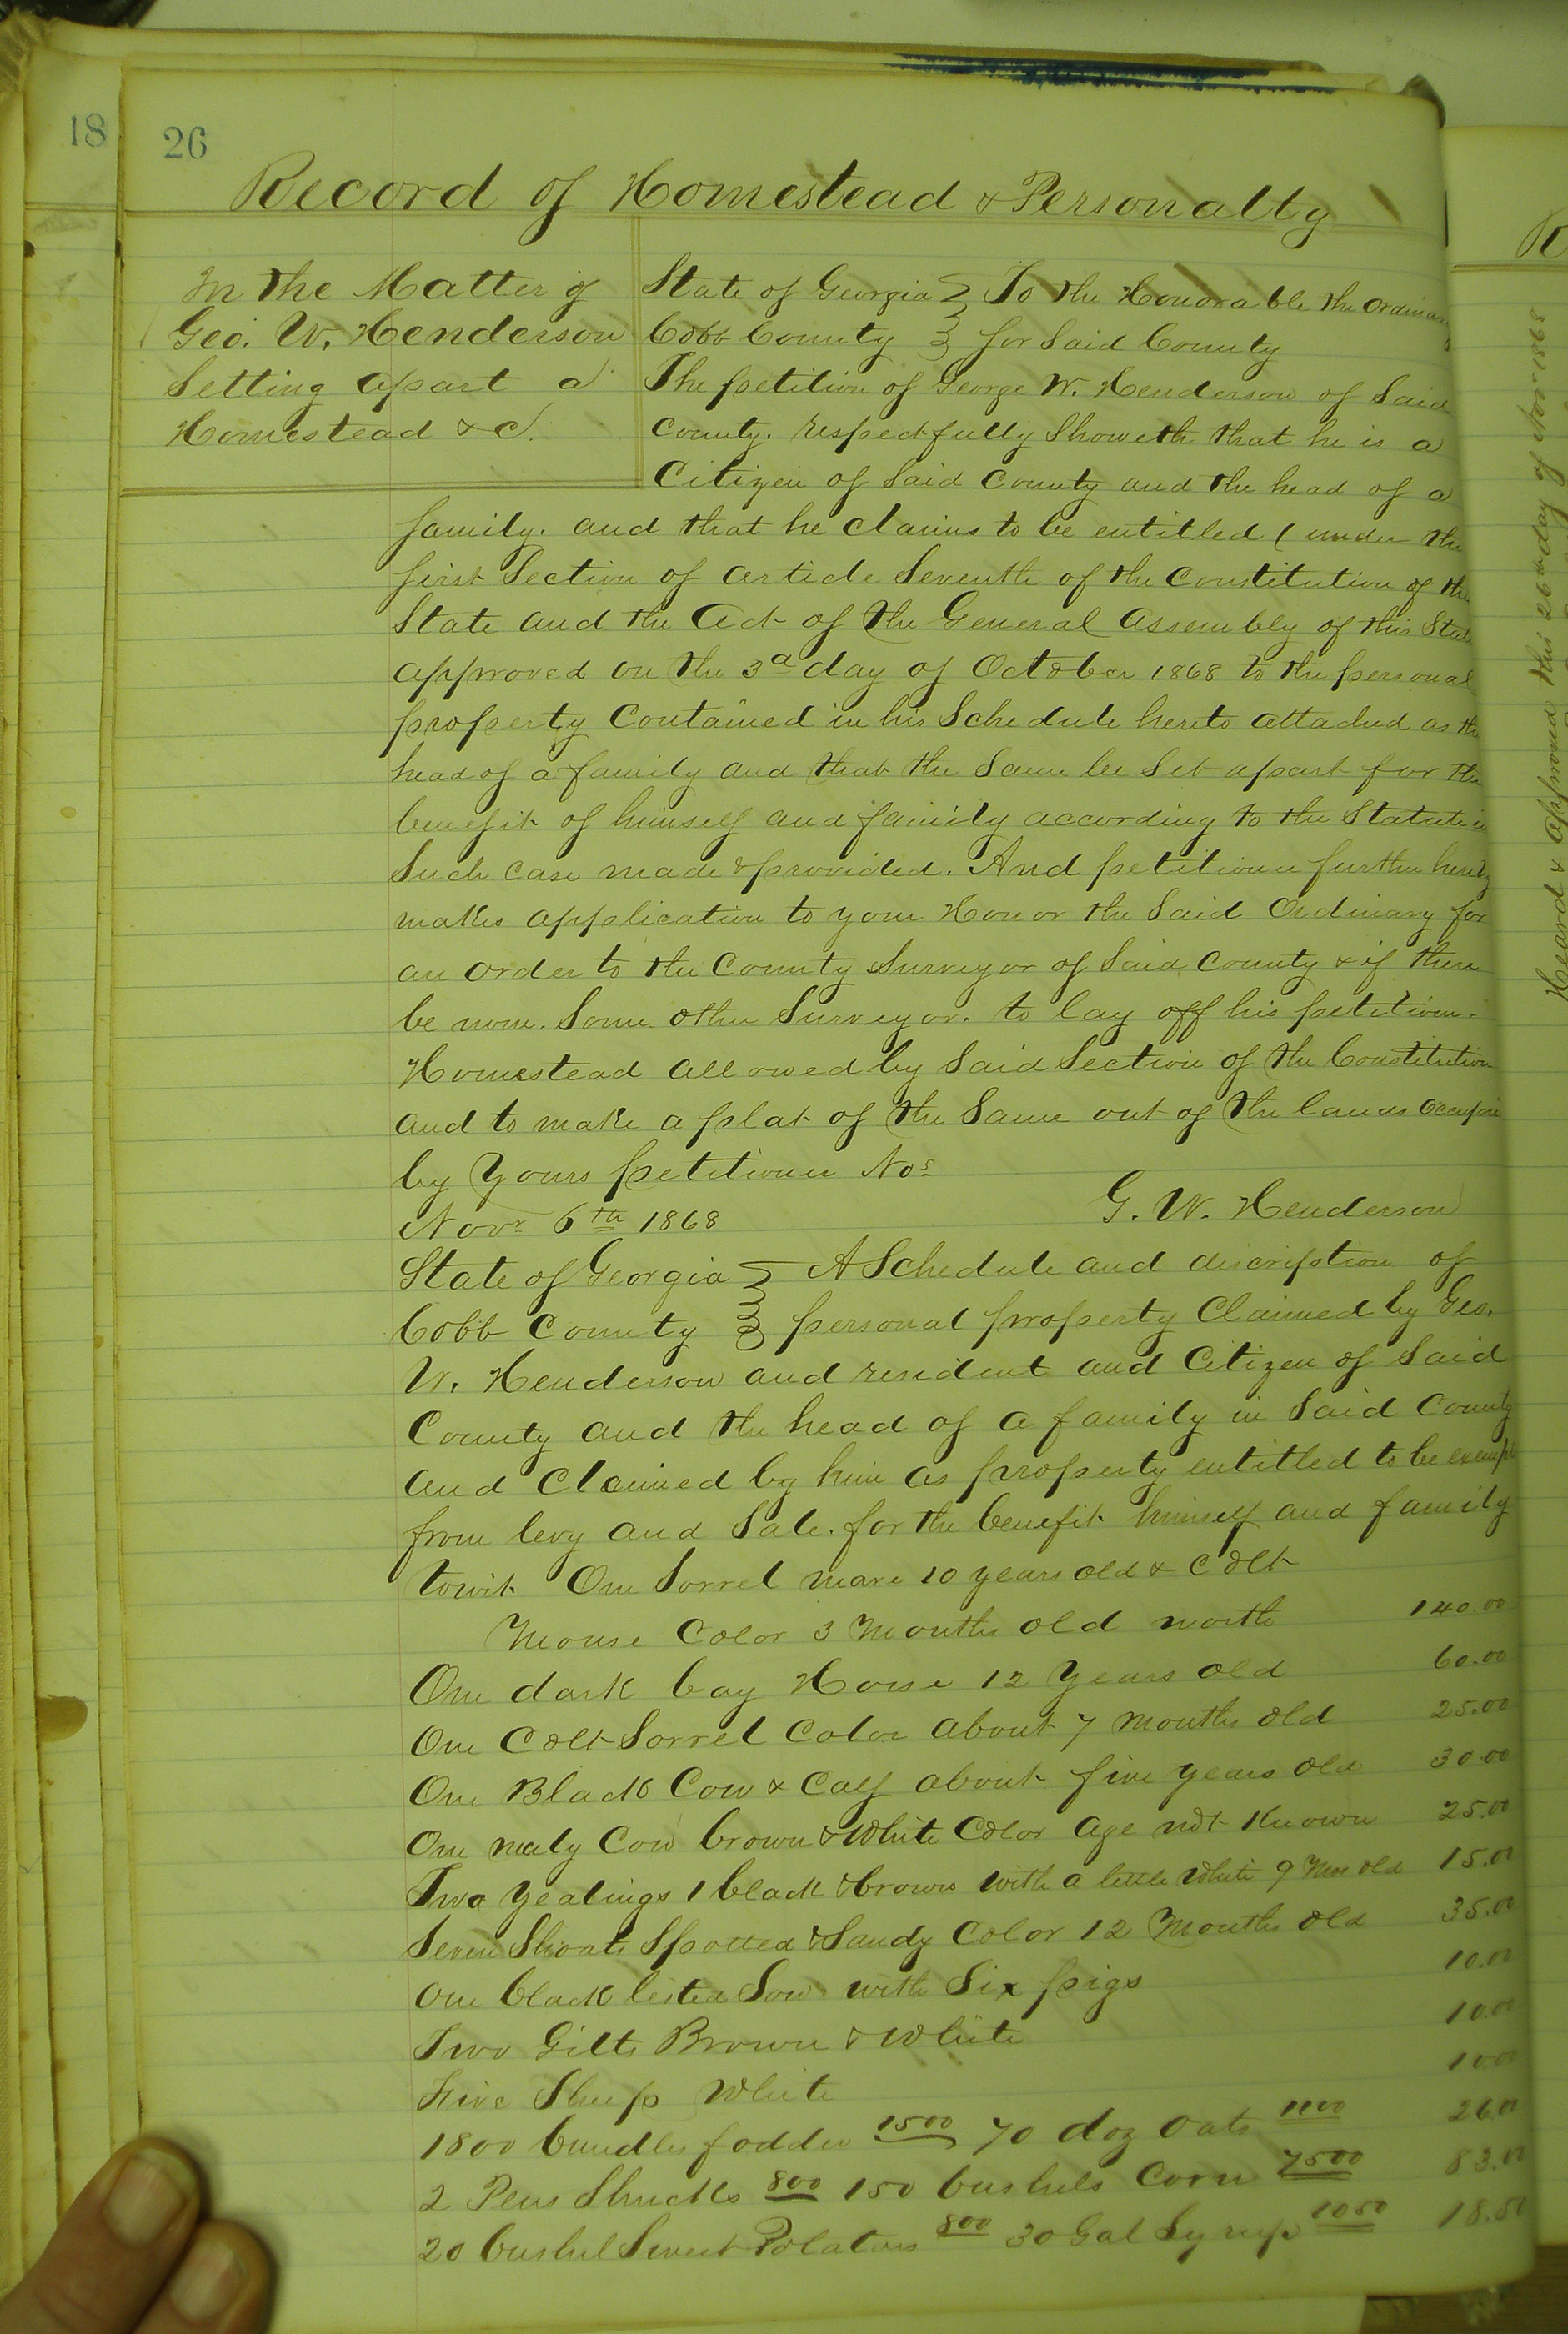 18
26
Record of Homestead & Personalty
In the Matter of
Geo. W. Henderson
Setting apart a
Homestead &c.
State of Georgia } To the Honorable the Ordinary
Cobb County } for Said County
The petition of George W. Henderson of Said
County. respectfully Showeth that he is a
Citizen of Said County and the head of a
family. and that he claims to be entitled ( under the
first Section of article Seventh of the Constitution of the
State and the Act of the General Assembly of this State
approved on the 3d day of October 1868 to the personal
property Contained in his Schedule hereto attached as the
head of a family and that the Same be Set apart for the
benefit of himself and family according to the Statute in
Such case made & provided. And petitioner further hereby
makes application to your Honor the Said Ordinary for
an order to the County Surveyor of Said County & if there
be none. Some other Surveyor. to lay off his petition.
Homestead allowed by Said Section of the Constitution
and to make a plat of the Same out of the lands
by yours petitioner Nos
Novr 6th 1868
G. W. Henderson
State of Georgia } A Schedule and discription of
Cobb County } personal property Claimed by Geo.
W. Henderson and resident and Citizen of Said
County and the head of a family in Said County
and Claimed by him as property entitled to be exempt
from levy and Sale. for the benefit himself and family
towit One Sorrel mare 10 years old & Colt
Mouse Color 3 Months old worth 140.00
One dark bay Horse 12 Years old 60.00
One Colt Sorrel Color about 7 Months old 25.00
One Black Cow & Calf about five years old 30.00
One Cow brown & White Color age not Known 25.00
Two yealings 1 black & brown with a little White 9 Mos old 15.00
Seven Shoats Spotted & Sandy Color 12 Months old 35.00
One black listed Sow with Six pigs 10.00
Two Gilts Brown & White 10.00
Five Sheep White 10.00
1800 bundles fodder 1500 70 doz Oats 1100 26.00
2 Pens Shucks 800 150 bushels Corn 7500 83.00
20 bushel Sweet Potatoes 800 30 Gal Syrup 1050 18.50
Heard & Approved this 26th day of Nov 1868
R